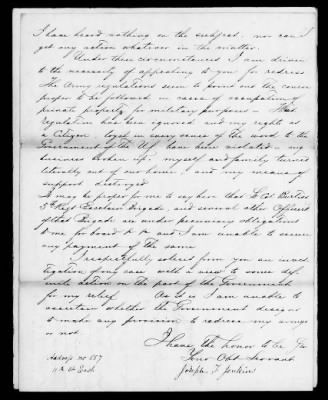 I have heard nothing on the subject, nor can I
get any action whatever in the matter.
Under these circumstances I am driven
to the necessity of appealing to you for redress
The Army regulations seem to point out the course
proper to be followed in cases of occupation of
private property for military purposes. That
regulation has been ignored and my rights as
a citizen, loyal in every sense of the word to the
Government of the US, have been violated, my
business broken up, myself and family turned
literally out of our home, and my means of
support destroyed
It may be proper for me to say here that
Brigade and several other Officers
of that Brigade are under pecuniary obligations
to me for board &c &c and I am unable to secure
any payment of the same
I respectfully solicit from you an inves
tigation of my case with a view to some defi
nite action on the part of the Government
for my relief. As it is I am unable to
ascertain whether the Government designs
to make any provision to redress my wrongs
or not.
I have the honor to be Sir
Your Obt Servant
Joseph F Jenkins
Address no 557
11th St